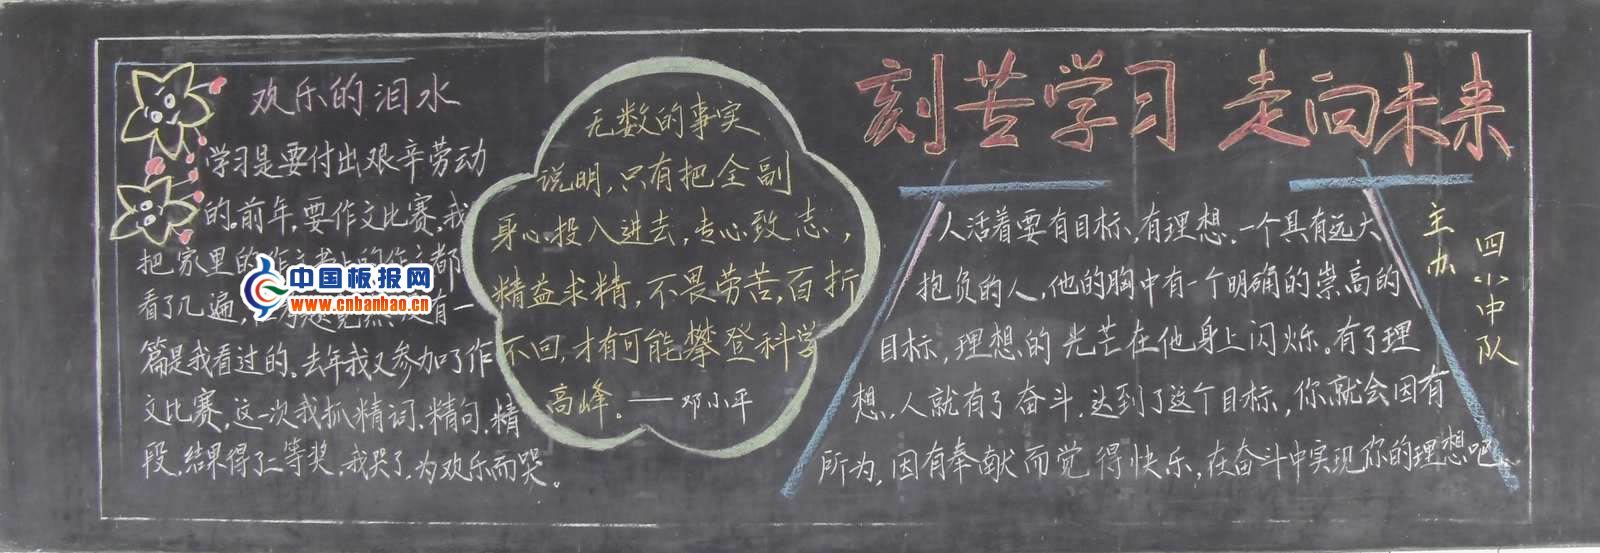 欢乐的泪水
学习是要付出艰辛劳动
的。前年,要作文比赛,我
把家里的作文书上的作文都
看了几遍,
有一
篇是我看过的。去年我又参加了作
文比赛,这一次我抓精词、精句、精
段,结果得了二等奖,我哭了,为欢乐而哭。
中国板报网
www.cnbanbao.cn
无数的事实
说明,只有把全副
身心投入进去,专心致志,
精益求精,不畏劳苦,百折
不回,才有可能攀登科学
高峰。——邓小平
刻苦学习 走向未来
人活着要有目标,有理想。一个具有远大
抱负的人,他的胸中有一个明确的崇高的
目标,理想的光芒在他身上闪烁。有了理
想,人就有了奋斗,达到了这个目标,你就会因有
所为,因有奉献而觉得快乐,在奋斗中实现你的理想吧。
主办
四小中队